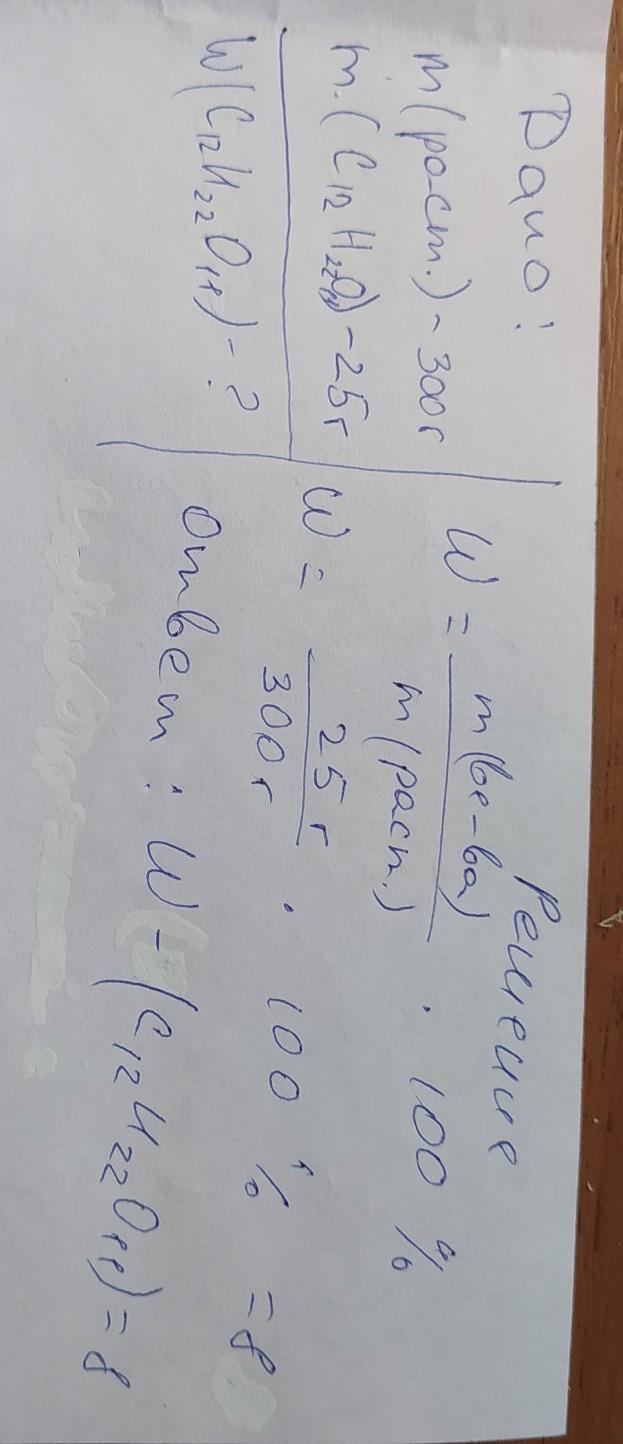 Дано:
m(раст.) - 300г
m.(C₁₂H₂₂O₁₁) - 25г
W(C₁₂H₂₂O₁₁) - ?
Решение
W = m(ве-ва) / m(раст.) · 100 %
W = 25 г / 300 г · 100 % = 8
Ответ: W - (C₁₂H₂₂O₁₁) = 8